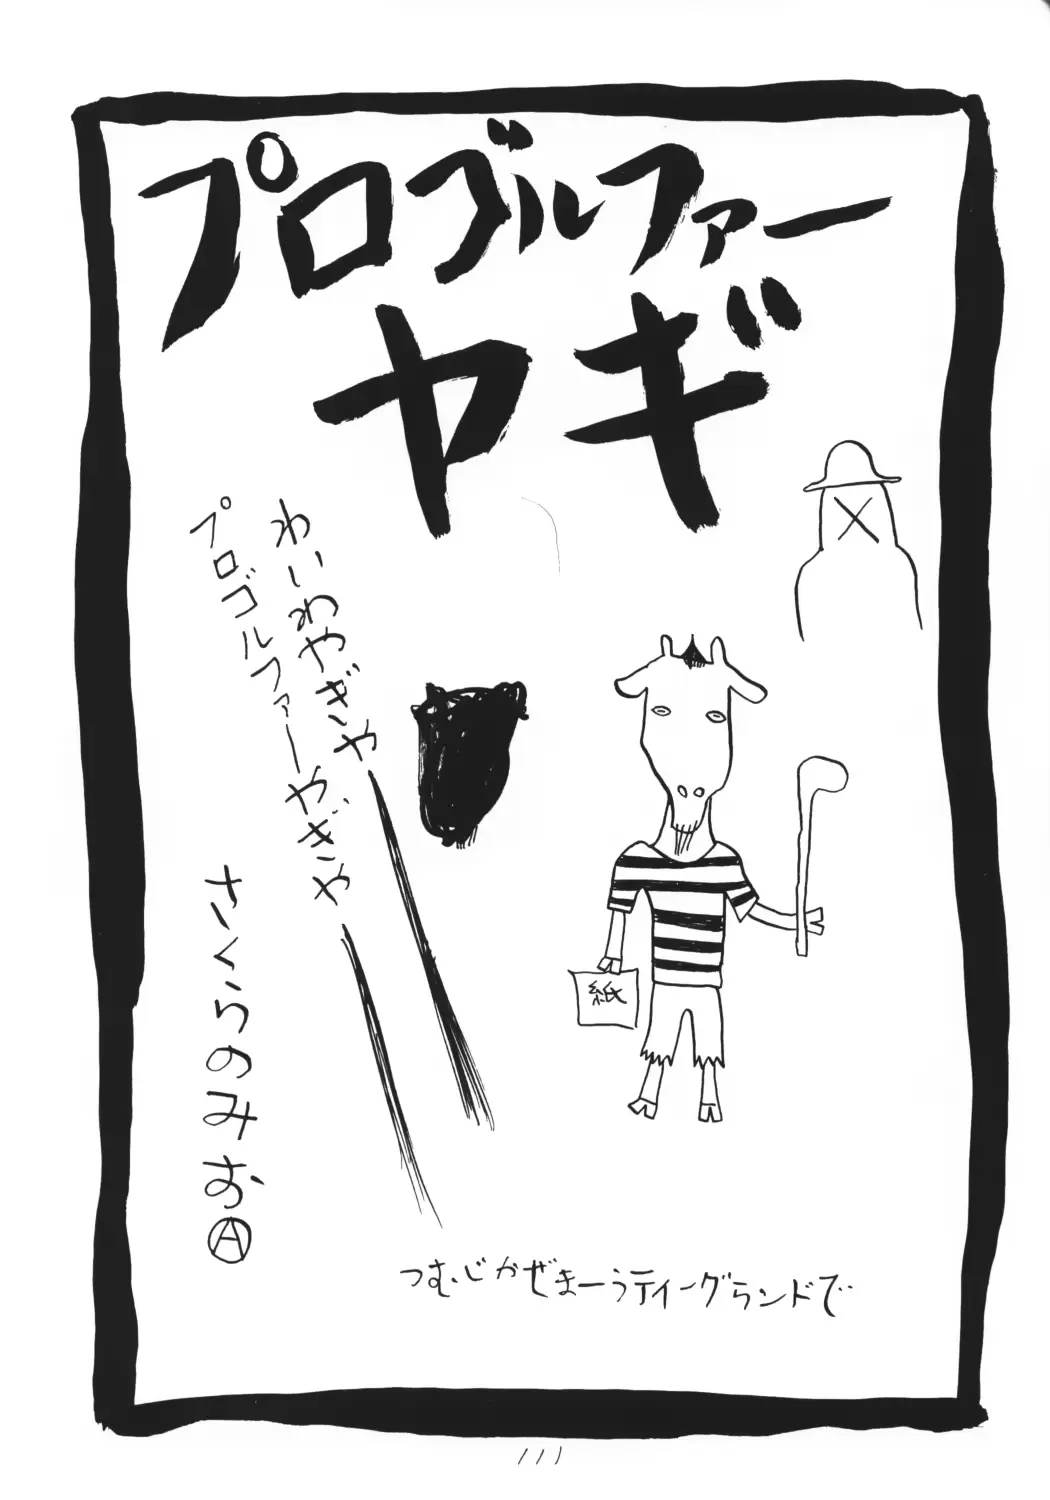 プロゴルファー
ヤギ
わいわやぎや
プロゴルファーやぎや
紙
さくらのみおⒶ
つむじかぜまーうティーグランドで
111